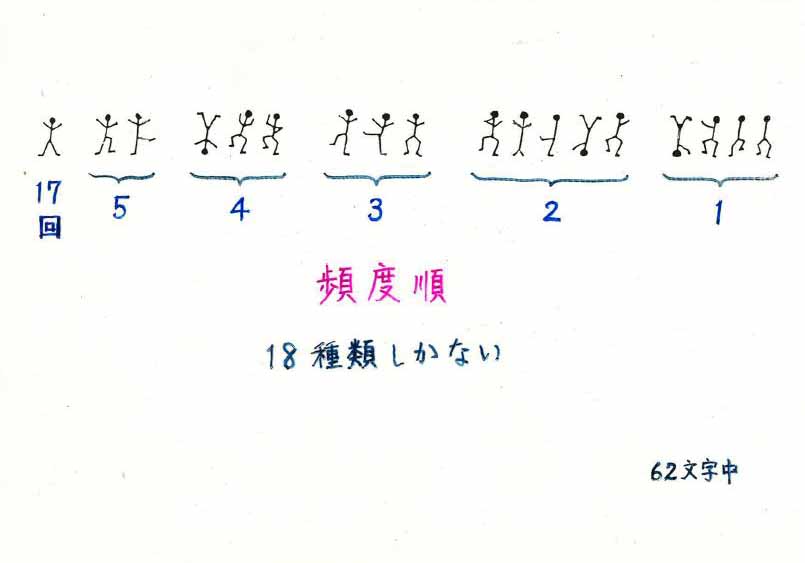 17 5 4 3 2 1
回
頻度順
18種類しかない
62文字中